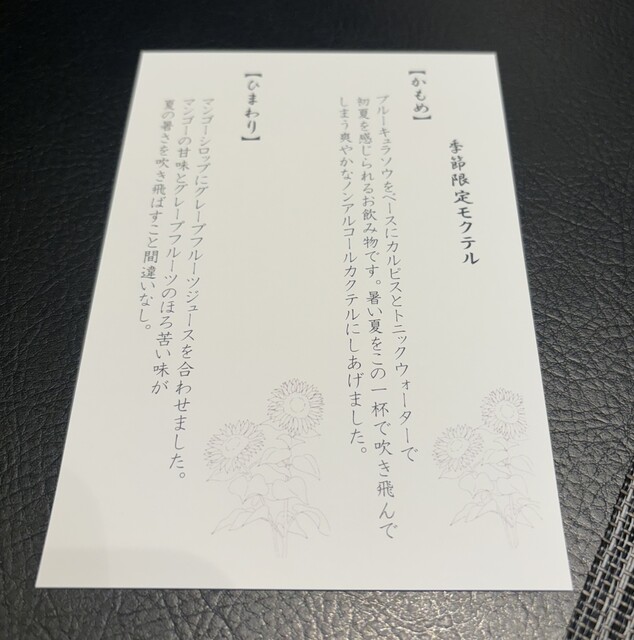 季節限定モクテル
【かもめ】
ブルーキュラソウをベースにカルピスとトニックウォーターで
初夏を感じられるお飲み物です。暑い夏をこの一杯で吹き飛んで
しまう爽やかなノンアルコールカクテルにしあげました。
【ひまわり】
マンゴーシロップにグレープフルーツジュースを合わせました。
マンゴーの甘味とグレープフルーツのほろ苦い味が
夏の暑さを吹き飛ばすこと間違いなし。